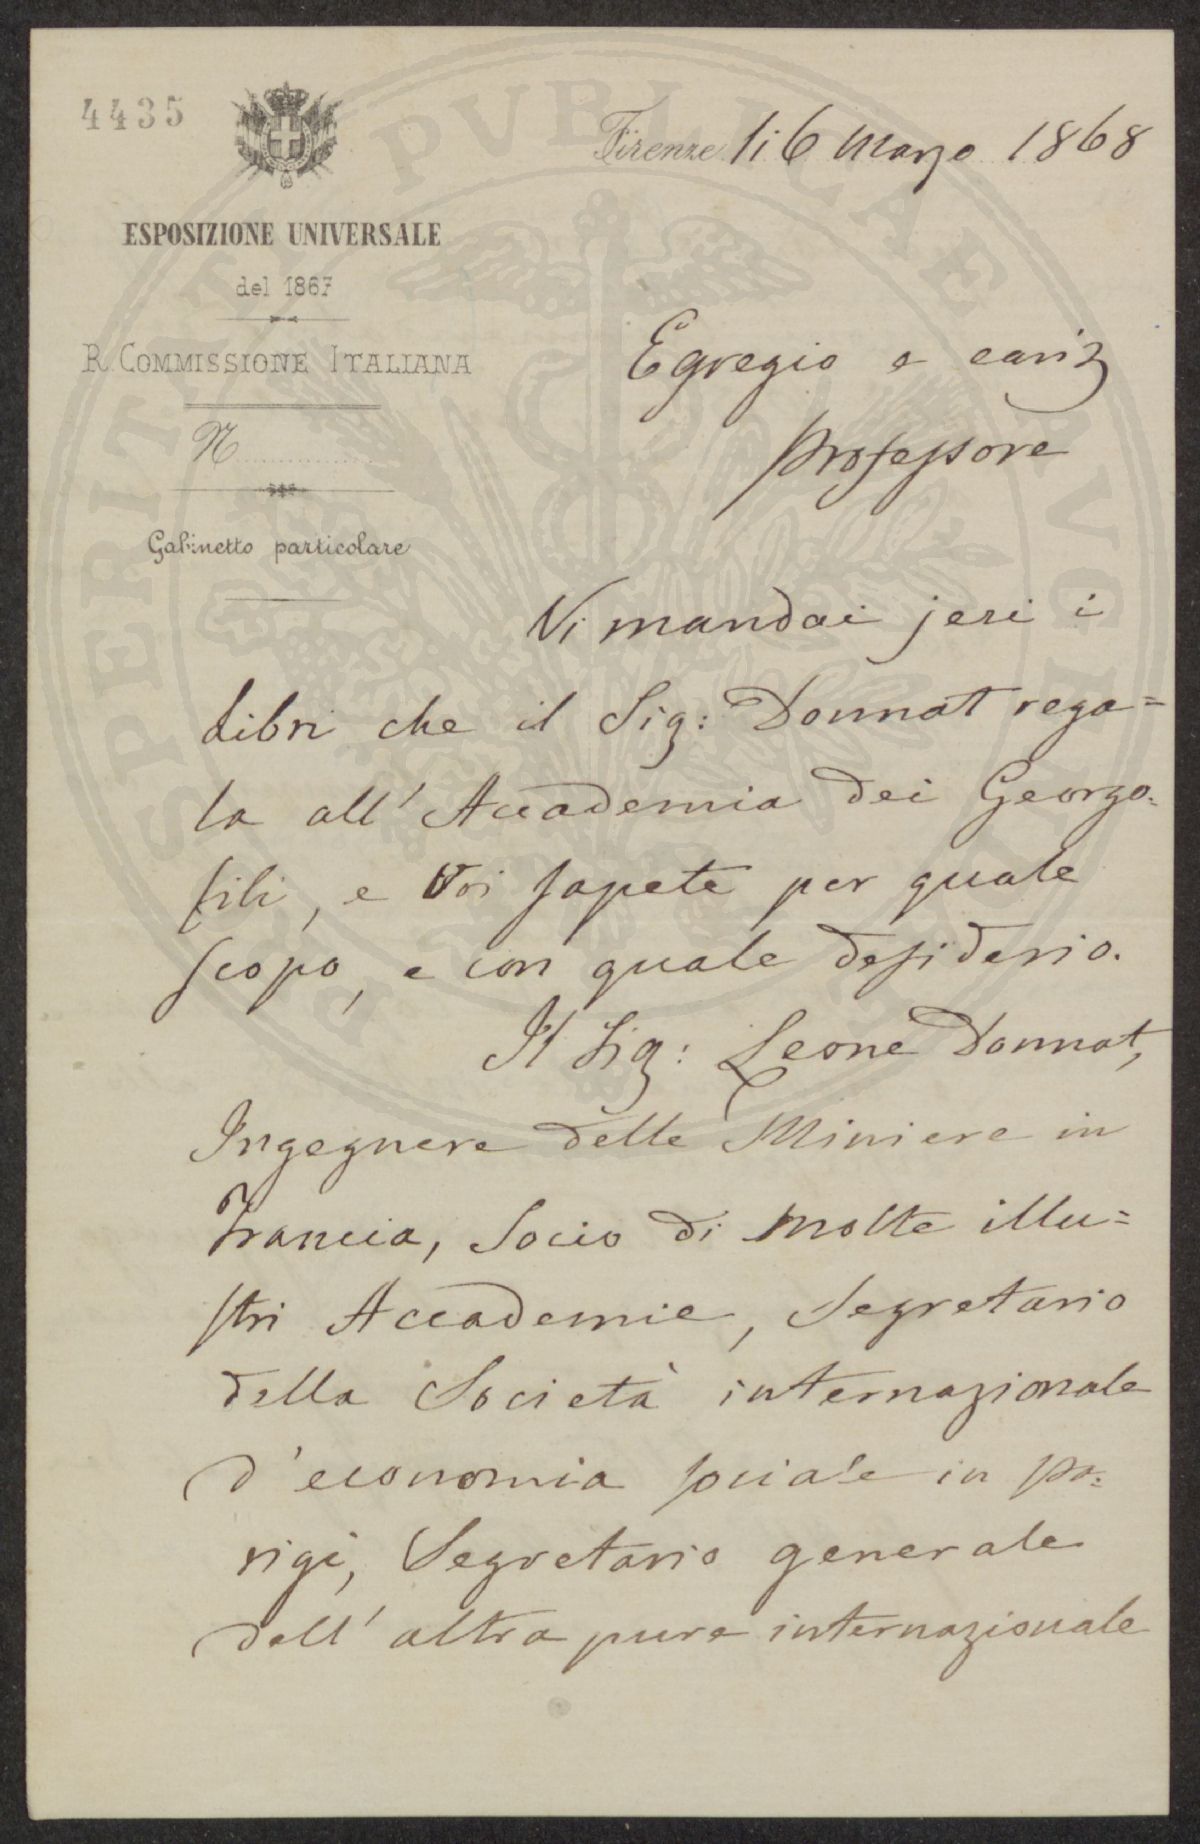 4435
Firenze li 6 Marzo 1868
ESPOSIZIONE UNIVERSALE
del 1867
R. COMMISSIONE ITALIANA
N
Gabinetto particolare
Egregio e
Professore
Vi mandai jeri i
Libri che il Sig: Donnat rega=
la all' Accademia dei Georgo=
fili, e Voi sapete per quale
scopo, e con quale desiderio.
Il Sig: Leone Donnat,
Ingegnere delle Miniere in
Francia, Socio di molte illu=
stri Accademie, Segretario
della Società internazionale
d'economia sociale in Pa=
rigi, Segretario generale
dell' altra pure internazionale